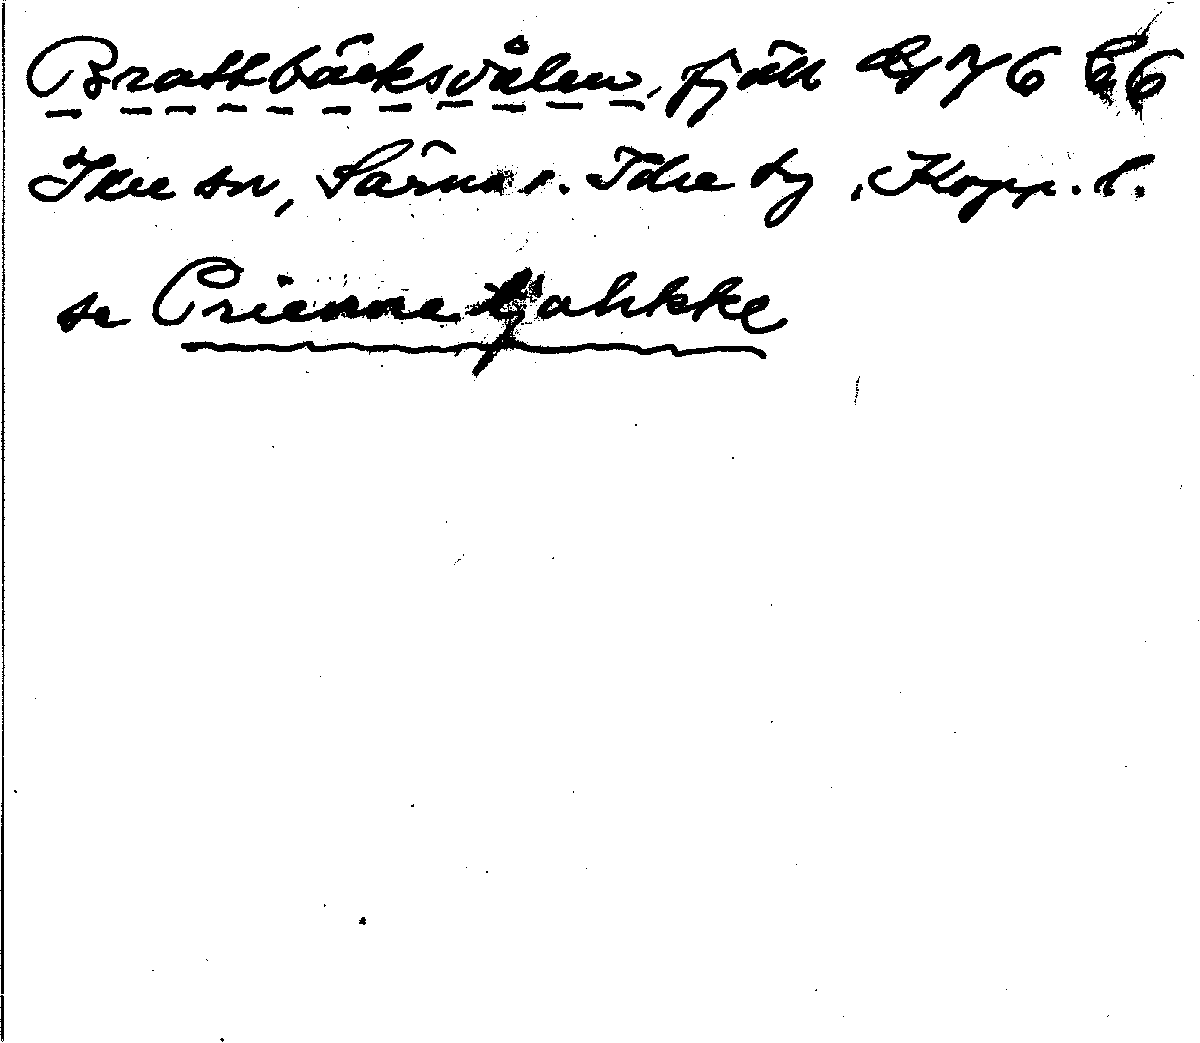 Brattbäcksvålen, fjäll
Idre sn, Särna o. Idre tg, Kopp. l.
se Crienne tjahkke